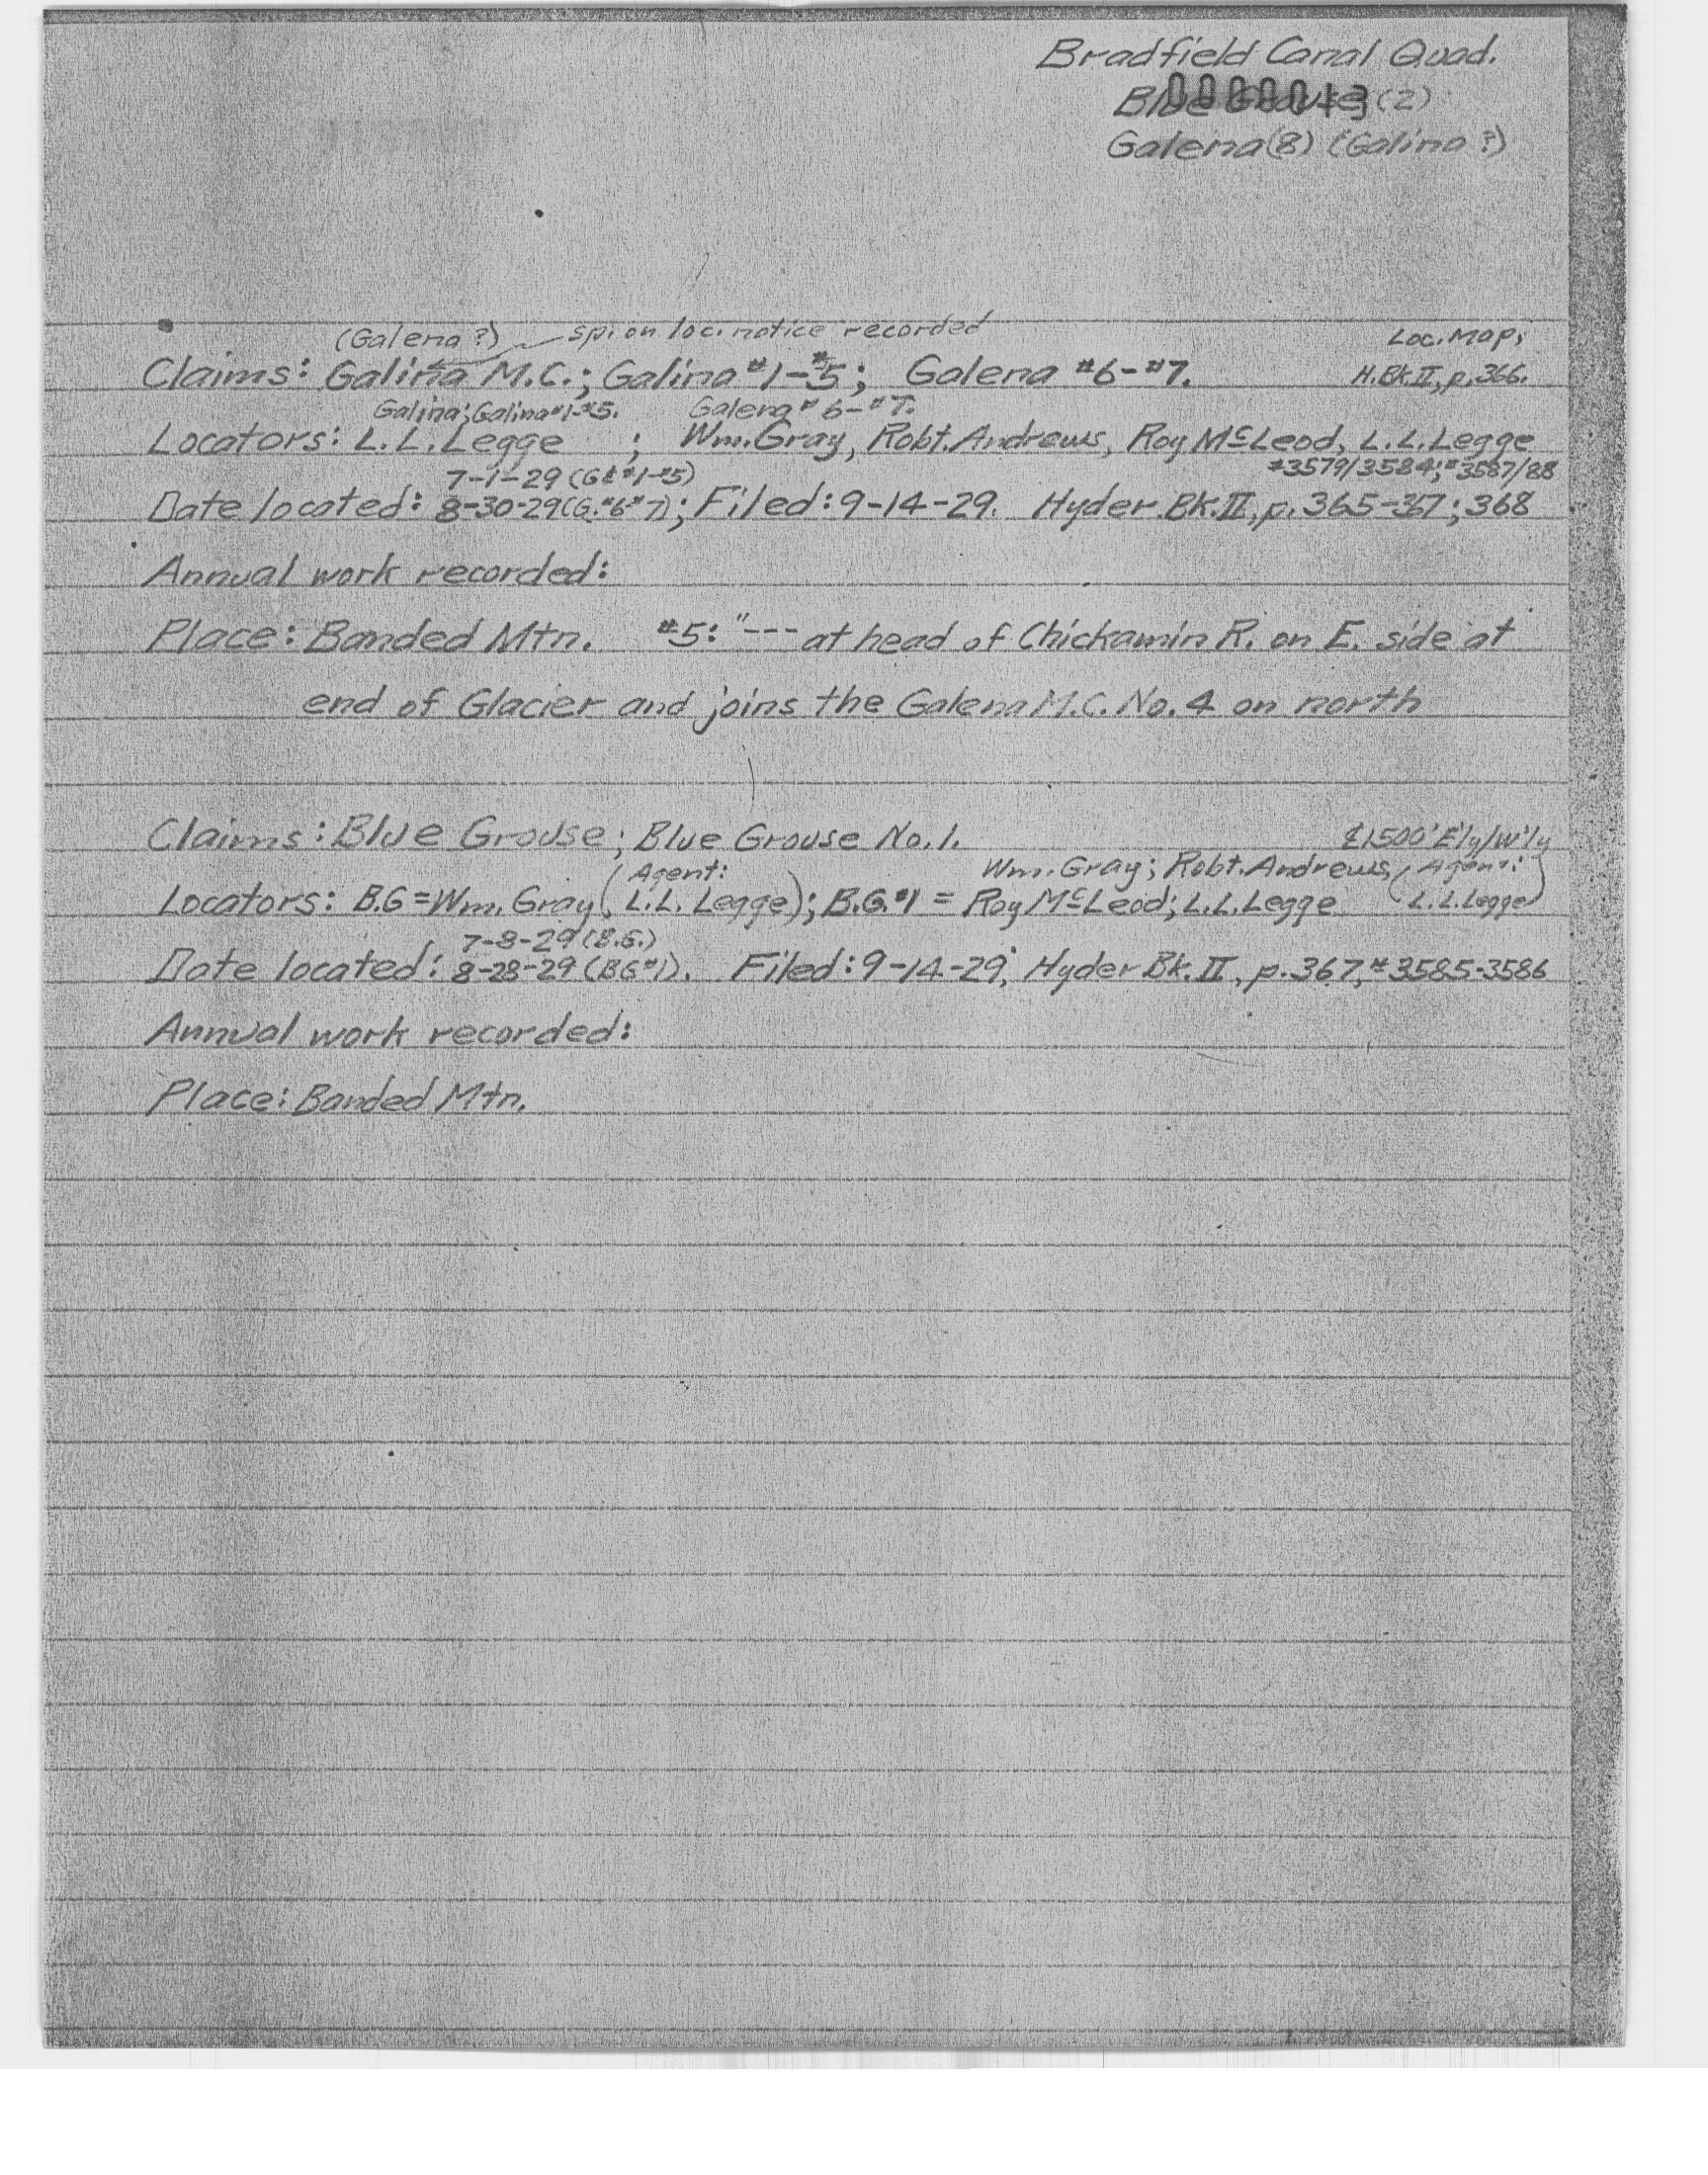 Bradfield Canal Quad.
Blue Grouse (2)
0000013
Galena (8) (Galina ?)
(Galena ?) sp. on loc. notice recorded
Loc. Map;
Claims: Galina M.C.; Galina #1-#5; Galena #6-#7.
H. Bk. II, p. 366.
Galina; Galina #1-#5. Galena #6-#7.
Locators: L.L. Legge ; Wm. Gray, Robt. Andrews, Roy McLeod, L.L. Legge
7-1-29 (G & #1-#5) #3579/3584; #3587/88
Date located: 8-30-29 (G. #6 #7); Filed: 9-14-29. Hyder Bk. II, p. 365-367; 368
Annual work recorded:
Place: Banded Mtn. #5: "--- at head of Chickamin R. on E. side at
end of Glacier and joins the Galena M.C. No. 4 on north
Claims: Blue Grouse; Blue Grouse No. 1. 1500' E'ly/W'ly
(Agent: Wm. Gray; Robt. Andrews, (Agent:
Locators: B.G = Wm. Gray, L.L. Legge); B.G. #1 = Roy McLeod; L.L. Legge L.L. Legge)
7-8-29 (B.G.)
Date located: 8-28-29 (BG #1). Filed: 9-14-29; Hyder Bk. II, p. 367, #3585-3586
Annual work recorded:
Place: Banded Mtn.